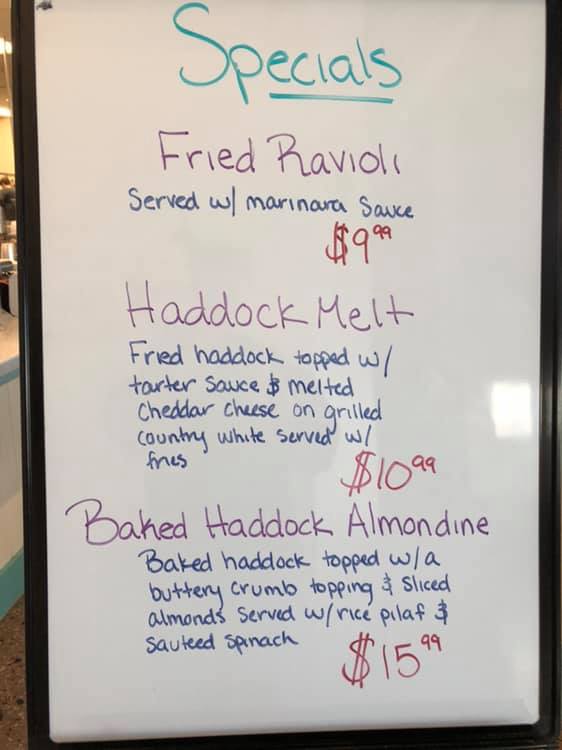 Specials
Fried Ravioli
Served w/ marinara Sauce
$9.99
Haddock Melt
Fried haddock topped w/
tarter Sauce & melted
Cheddar cheese on grilled
country white served w/
fries
$10.99
Baked Haddock Almondine
Baked haddock topped w/a
buttery crumb topping & Sliced
almonds Served w/rice pilaf &
Sauteed Spinach
$15.99